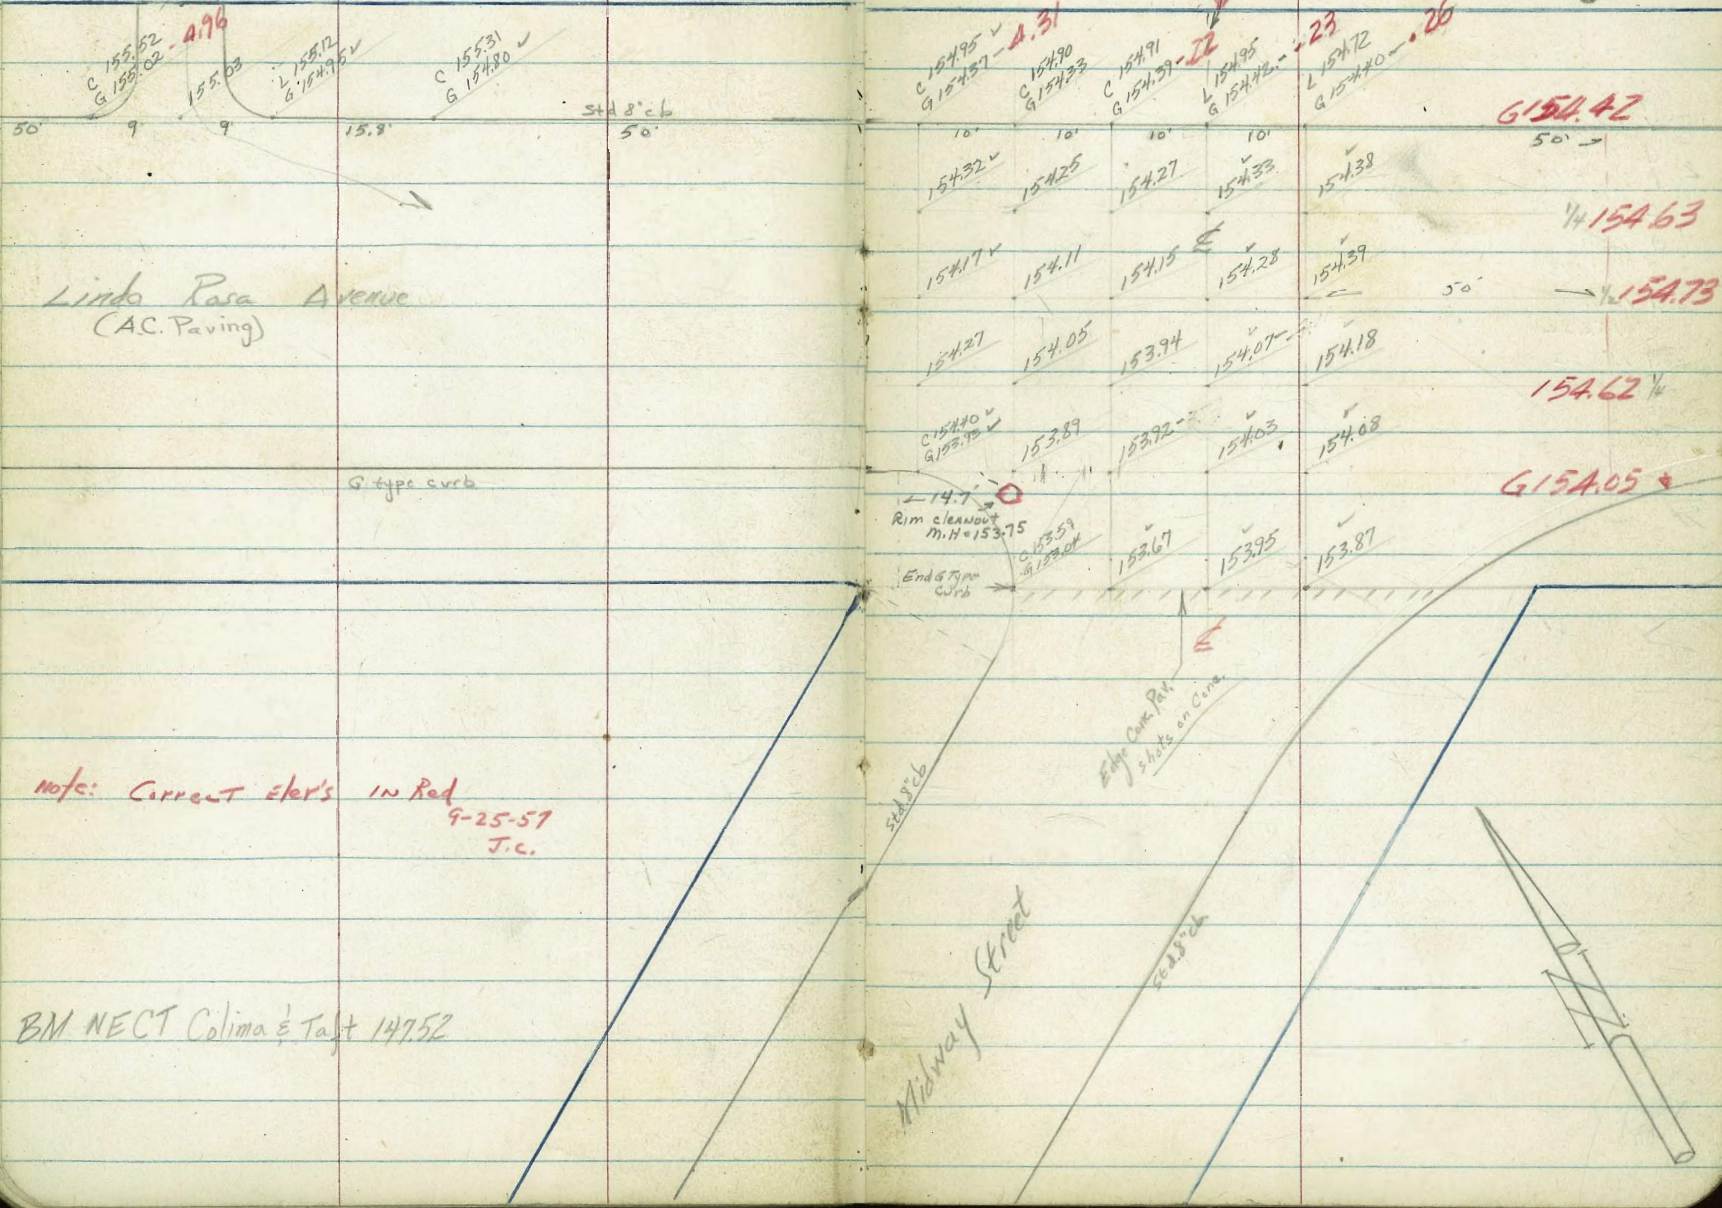 C 155.52
G 155.02 - 4.96
155.03
L 155.12
G 154.95 ✓
C 155.31
G 154.80 ✓
50' 9' 9' 15.8' Std 8" cb 50'
Linda Rosa Avenue
(A.C. Paving)
G type curb
Note: Correct Elev's IN Red
9-25-57
J.C.
BM NECT Colima & Taft 147.52
C 154.95 ✓
G 154.37 - 4.31
C 154.90
G 154.33
C 154.91
G 154.39 -
L 154.95
G 154.42 - .23
L 154.72
G 154.40 - .26
G 154.42
10' 10' 10' 10' 50' →
154.32 ✓ 154.25 154.27 154.33 ✓ 154.38 ✓
1/4 154.63
℄
154.17 ✓ 154.11 154.15 154.28 ✓ 154.39 ✓
← 50' → 1/2 154.73
154.27 154.05 153.94 154.07 ✓ 154.18 ✓
154.62 1/4
C 154.40 ✓
G 153.93 ✓
153.89 153.92 154.03 ✓ 154.08 ✓
G 154.05
14.7'
Rim cleanout
M.H = 153.75
C 153.59
G 153.04
153.67 ✓ 153.95 ✓ 153.87 ✓
End G Type
Curb
℄
Edge Conc. Pav.
shots on Conc.
Std. 8" cb
Std. 8" cb
Midway Street